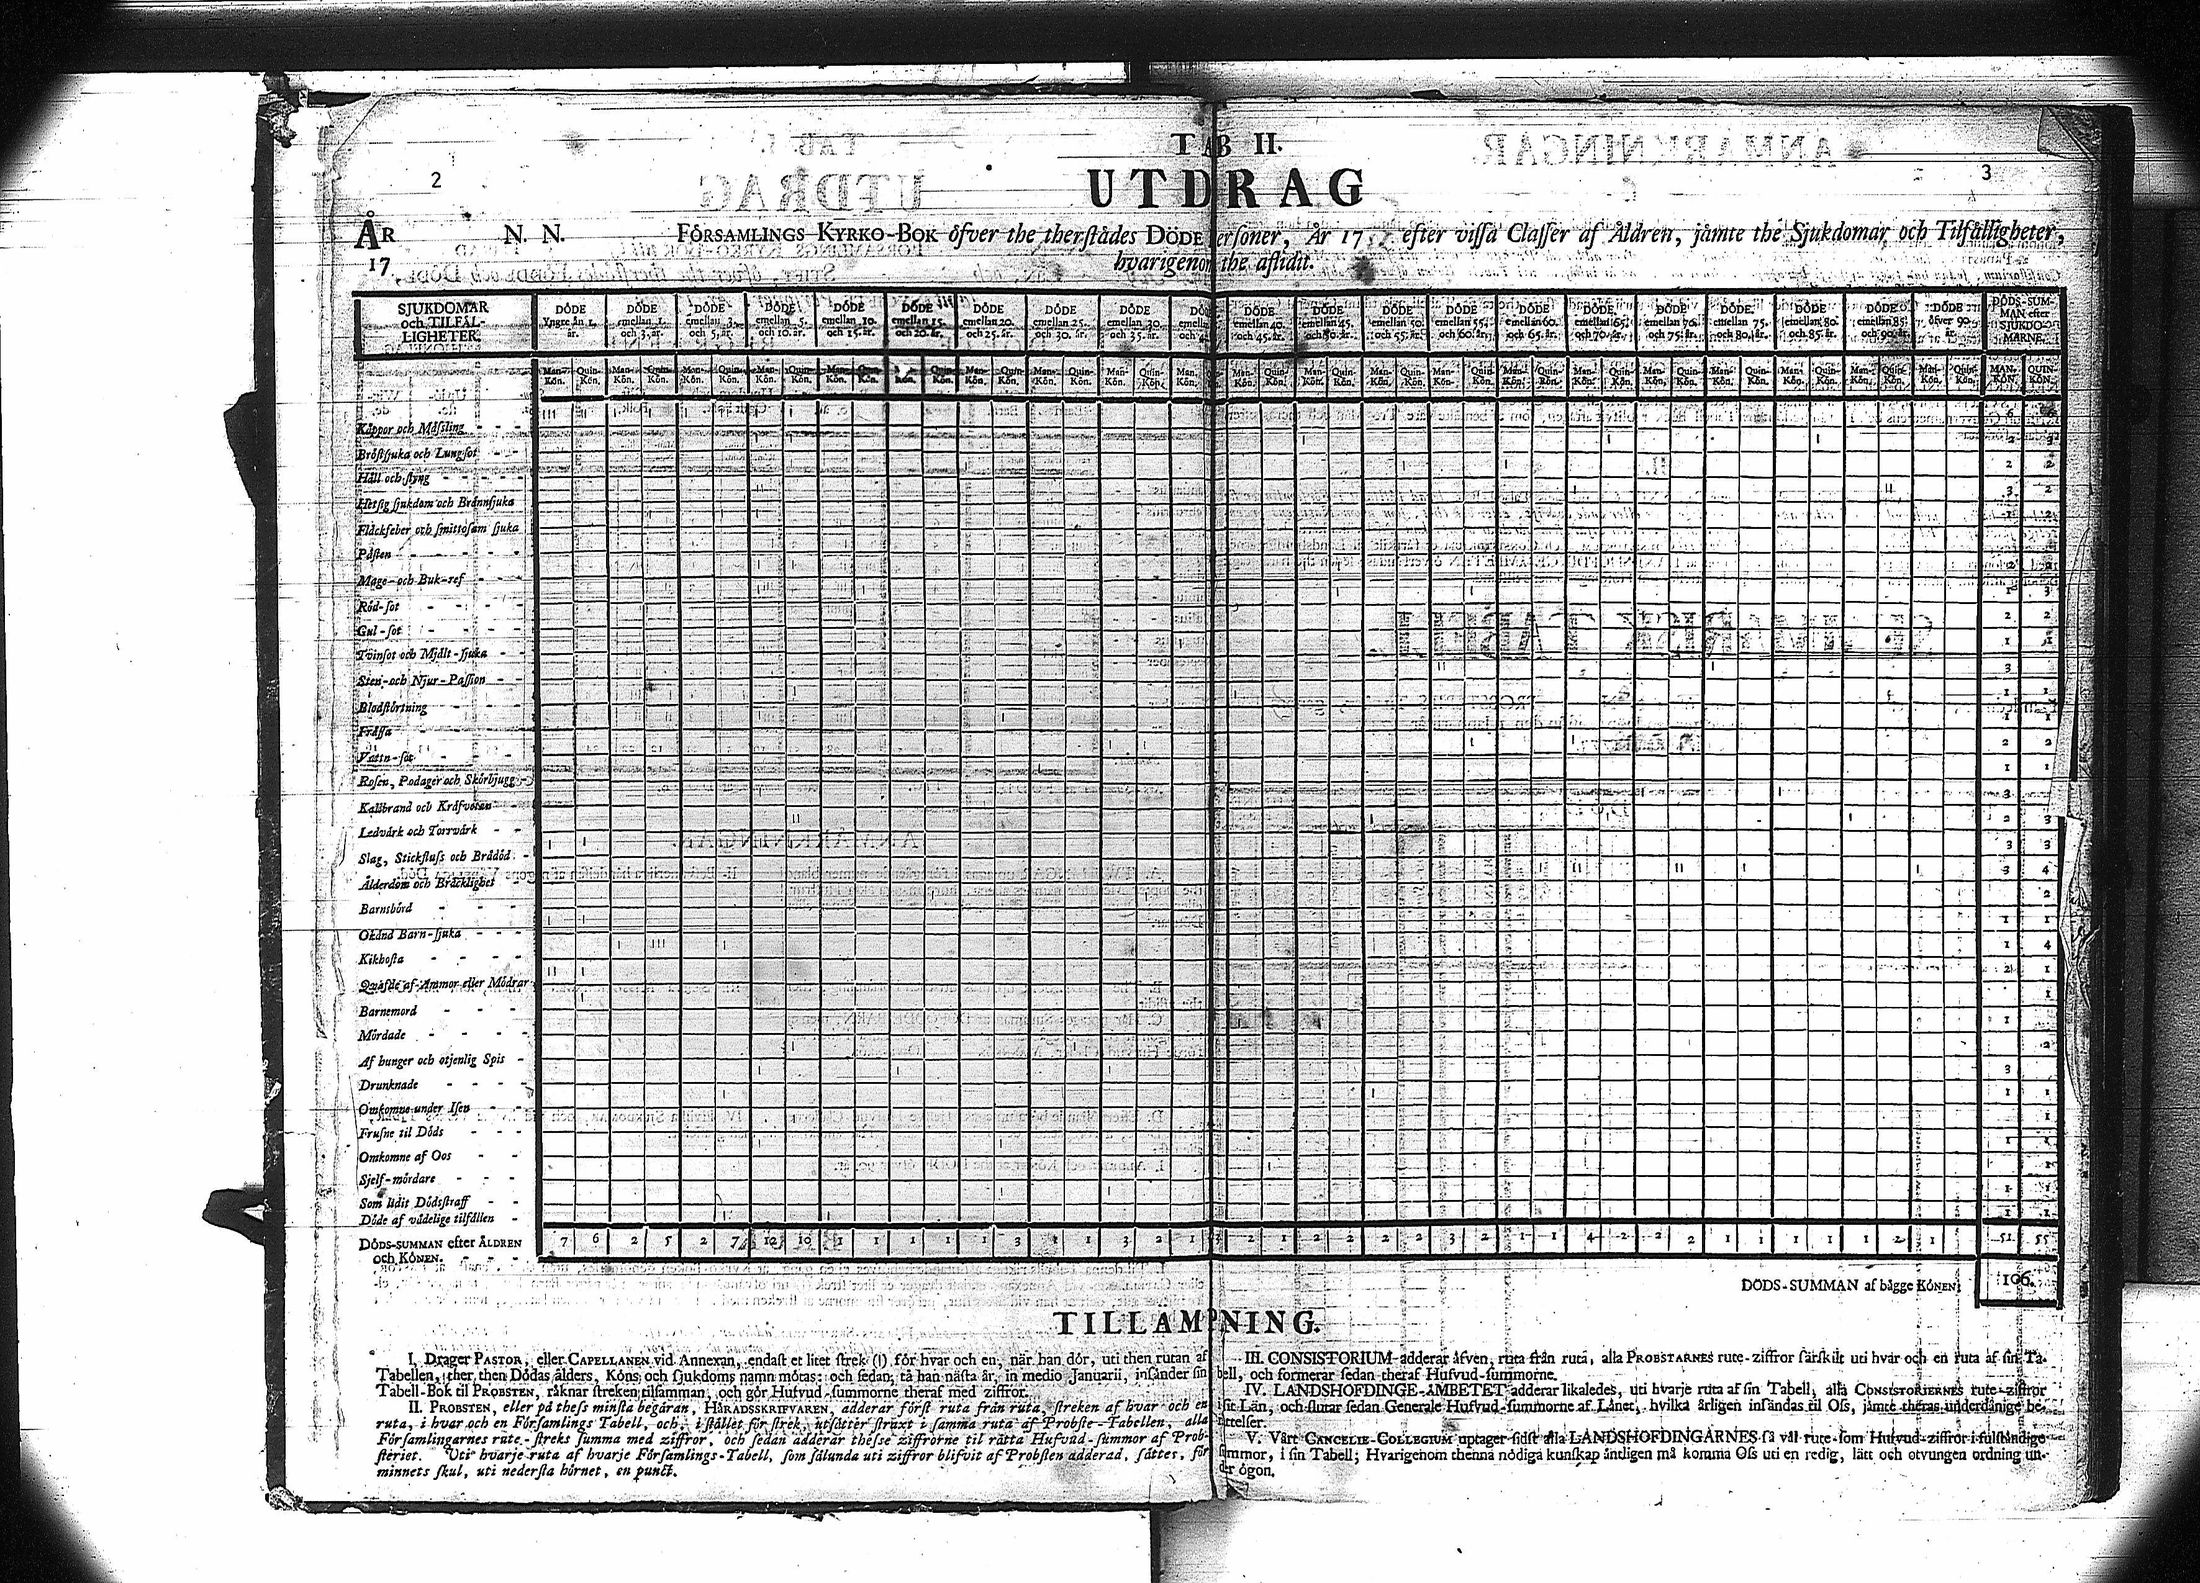 TAB II.
2
3
UTDRAG
ÅR N. N. FÖRSAMLINGS KYRKO-BOK öfver the therstädes DÖDE ersoner, År 17 efter vissa Classer af Åldren, jämte the Sjukdomar och Tilfälligheter,
17 hvarigenom the aflidit.
SJUKDOMAR och TILFÄL-LIGHETER.
DÖDE Yngre än 1. år.
DÖDE emellan 1. och 3. år.
DÖDE emellan 3. och 5. år.
DÖDE emellan 5. och 10. år.
DÖDE emellan 10. och 15. år.
DÖDE emellan 15. och 20. år.
DÖDE emellan 20. och 25. år.
DÖDE emellan 25. och 30. år.
DÖDE emellan 30. och 35. år.
DÖDE emellan 40. och 45. år.
DÖDE emellan 45. och 50. år.
DÖDE emellan 50. och 55. år.
DÖDE emellan 55. och 60. år.
DÖDE emellan 60. och 65. år.
DÖDE emellan 65. och 70. år.
DÖDE emellan 70. och 75. år.
DÖDE emellan 75. och 80. år.
DÖDE emellan 80. och 85. år.
DÖDE emellan 85. och 90. år.
DÖDE öfver 90. år.
DÖDS-SUMMAN efter SJUKDOMARNE.
Man-Kön. Quin-Kön.
Koppor och Mässling 6 6
Bröstsjuka och Lungsot 2 3
Håll och styng 2 2
Hetsig sjukdom och Brännsjuka 3 2
Fläckfeber och smittosam sjuka 1 2
Pästen
Mage- och Buk-ref 2 2
Röd-sot 1 3
Gul-sot 2 2
Tvinsot och Mjält-sjuka 1 1
Sten- och Njur-Passion 3
Blodstörtning 1 1
Frässa 1 1
Vattn-sot 2 2
Rosen, Podager och Skörbjugg 1 1
Kallbrand och Kräfvetan 3
Ledvärk och Torrvärk 2 3
Slag, Stickfluss och Brådöd 3 3
Ålderdom och Bräcklighet 3 4
Barnsbörd 2
Okänd Barn-sjuka 1 1
Kikhosta 1 4
Qväfde af Ammor eller Mödrar 2 1
Barnemord 1
Mördade 1
Af hunger och otjenlig Spis 2
Drunknade 3
Omkomne under Isen 1 1
Frusne til Döds 1
Omkomne af Oos 1 1
Sjelf-mördare 1
Som lidit Dödsstraff 1 1
Döde af vådelige tilfällen 1 1
DÖDS-SUMMAN efter ÅLDREN och KÖNEN. 7 6 2 5 2 7 12 10 1 1 1 1 1 3 1 1 3 2 1 2 1 2 2 2 2 3 2 1 1 4 2 2 2 1 1 1 1 1 2 1 51 55
DÖDS-SUMMAN af bägge KÖNEN. 106.
TILLÄMPNING.
I. Drager PASTOR, eller CAPELLANEN vid Annexan, endast et litet strek (|) för hvar och en, när han dör, uti then rutan af
Tabellen, ther, then Dödas ålders, Köns och sjukdoms namn mötas: och sedan, tå han nästa år, in medio Januarii, insänder sin
Tabell-Bok til PROBSTEN, räknar streken tilsamman, och gör Hufvud-summorne theraf med ziffror.
II. PROBSTEN, eller på thess minsta begäran, HÄRADSSKRIFVAREN, adderar först ruta från ruta, streken af hvar och en
ruta, i hvar och en Församlings Tabell, och, i stället för strek, utsätter strax i samma ruta af Probste-Tabellen, alla
Församlingarnes rute-streks summa med ziffror, och sedan adderar thesse ziffrorne til rätta Hufvud-summor af Prob-
steriet. Uti hvarje ruta af hvarje Församlings-Tabell, som sålunda uti ziffror blifvit af Probsten adderad, sättes, för
minnets skul, uti nedersta hörnet, en punct.
III. CONSISTORIUM adderar äfven, ruta från ruta, alla PROBSTARNES rute-ziffror särskilt uti hvar och en ruta af sin Ta-
bell, och formerar sedan theraf Hufvud-summorne.
IV. LANDSHÖFDINGE-ÄMBETET adderar likaledes, uti hvarje ruta af sin Tabell, alla CONSISTORIERNES rute-ziffror
i sit Län, och slutar sedan Generale Hufvud-summorne af Länet, hvilka årligen insändas til Oss, jämte theras underdånige be-
rättelser.
V. Vårt CANCELIE-COLLEGIUM uptager sidst alla LANDSHÖFDINGARNES så väl rute- som Hufvud-ziffror i fulständige
summor, i sin Tabell; Hvarigenom thenna nödiga kunskap äntligen må komma Oss uti en redig, lätt och otvungen ordning un-
der ögon.